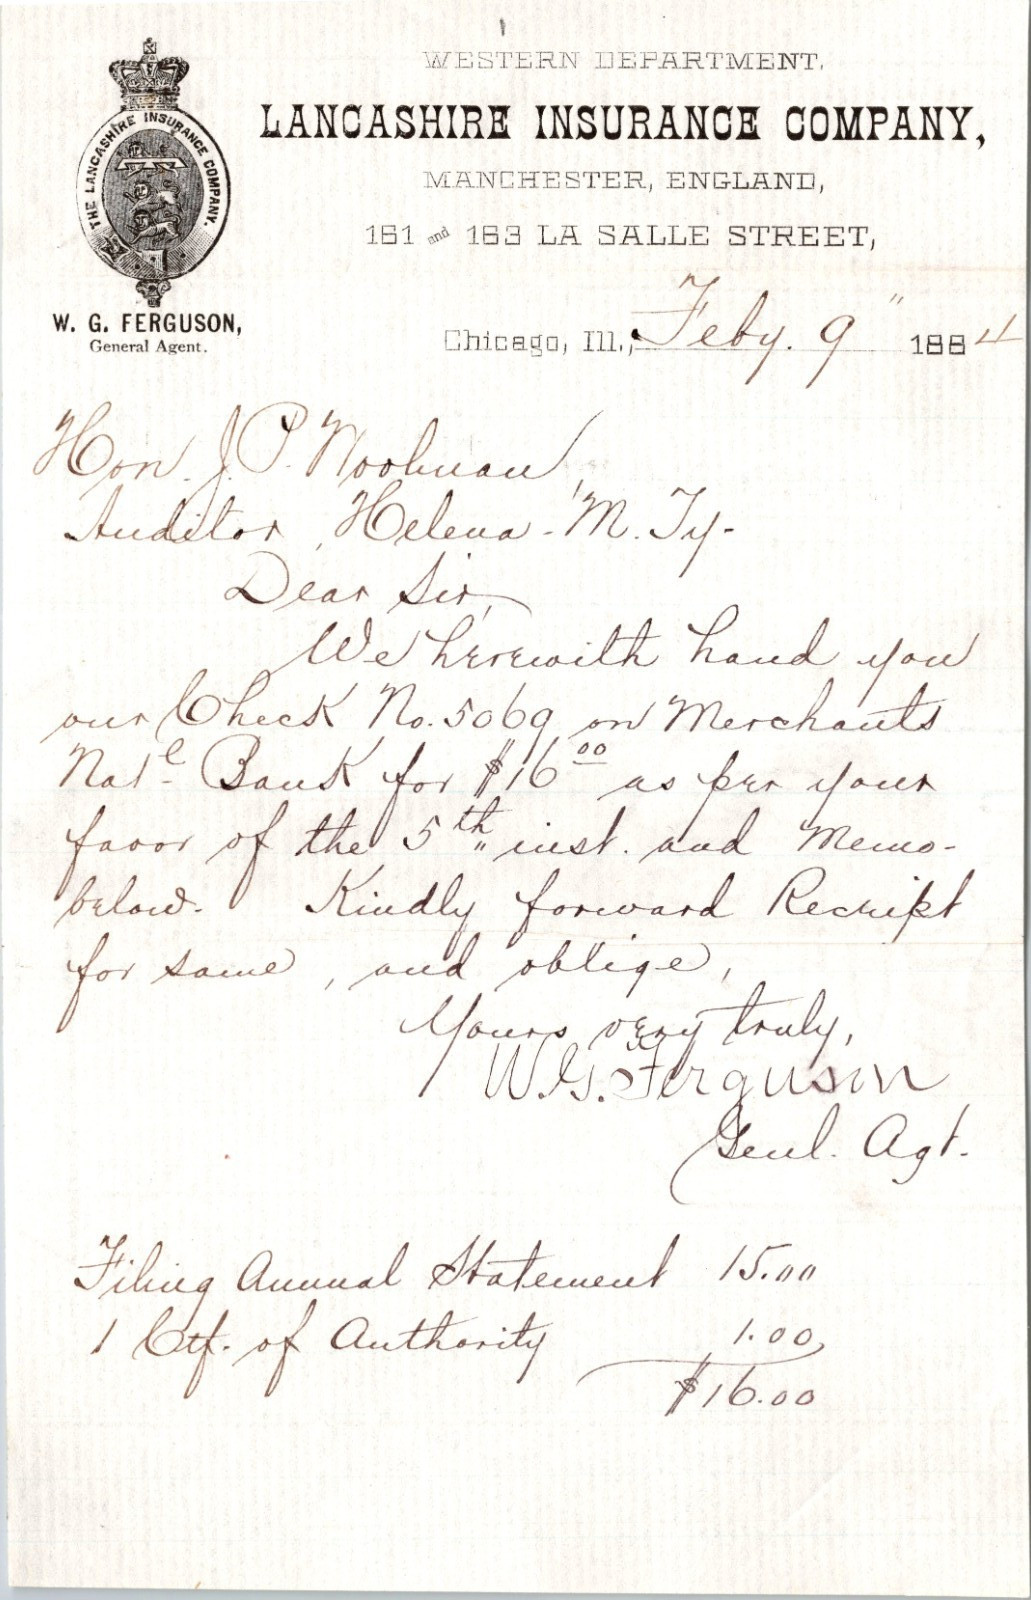 WESTERN DEPARTMENT,
LANCASHIRE INSURANCE COMPANY,
MANCHESTER, ENGLAND,
181 and 183 LA SALLE STREET,
THE LANCASHIRE INSURANCE COMPANY.
W. G. FERGUSON,
General Agent.
Chicago, Ill., Feby. 9" 1884
Hon. J. P. Woolman,
Auditor, Helena - M. Ty-
Dear Sir,
We herewith hand you
our Check No. 5069 on Merchants
Natl Bank for $16 00 as per your
favor of the 5th inst. and Memo-
below. Kindly forward Receipt
for same, and oblige,
Yours very truly,
W. G. Ferguson
Genl. Agt.
Filing Annual Statement 15.00
1 Ctf. of Authority 1.00
$16.00